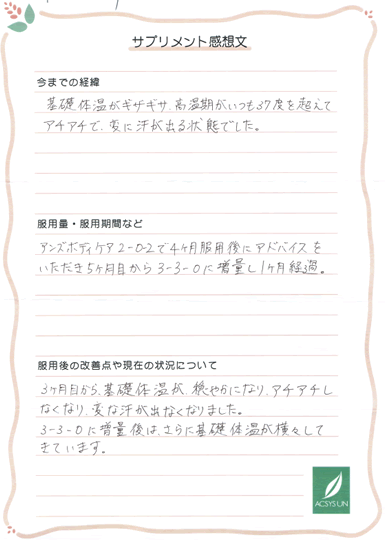 サプリメント感想文
今までの経緯
基礎体温がギザギザ、高温期がいつも37度を超えて
アチアチで、変に汗が出る状態でした。
服用量・服用期間など
アンズボディケア2-0-2で4ヶ月服用後にアドバイスを
いただき5ヶ月目から3-3-0に増量し1ヶ月経過。
服用後の改善点や現在の状況について
3ヶ月目から、基礎体温が、穏やかになり、アチアチし
なくなり、変な汗が出なくなりました。
3-3-0に増量後は、さらに基礎体温が横々して
きています。
ACSYS UN